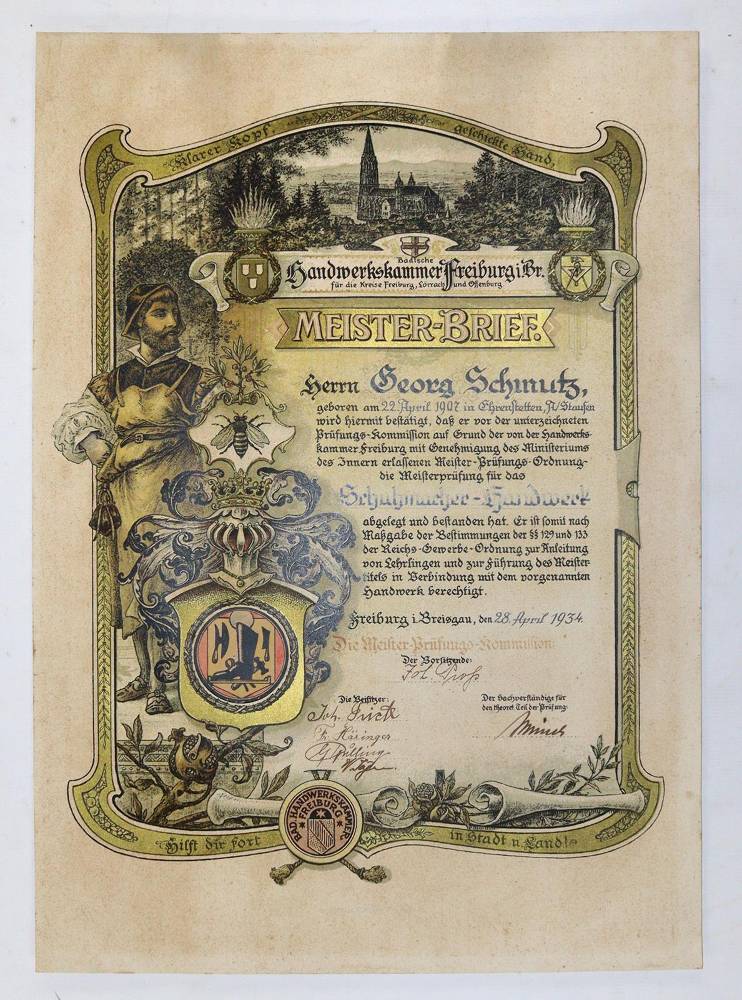 Klarer Kopf, geschickte Hand,
Badische
Handwerkskammer Freiburg i. Br.
für die Kreise Freiburg, Lörrach und Offenburg
MEISTER-BRIEF.
Herrn Georg Schmutz,
geboren am 22. April 1907 in Ehrenstetten, A/Staufen
wird hiermit bestätigt, daß er vor der unterzeichneten
Prüfungs-Kommission auf Grund der von der Handwerks-
kammer Freiburg mit Genehmigung des Ministeriums
des Innern erlassenen Meister-Prüfungs-Ordnung
die Meisterprüfung für das
Schuhmacher-Handwerk
abgelegt und bestanden hat. Er ist somit nach
Maßgabe der Bestimmungen der §§ 129 und 133
der Reichs-Gewerbe-Ordnung zur Anleitung
von Lehrlingen und zur Führung des Meister-
titels in Verbindung mit dem vorgenannten
Handwerk berechtigt.
Freiburg i. Breisgau, den 28. April 1934.
Die Meister-Prüfungs-Kommission:
Der Vorsitzende:
Die Beisitzer:
Der Sachverständige für
den theoret. Teil der Prüfung:
BAD. HANDWERKSKAMMER
FREIBURG
Hilft dir fort in Stadt u. Land!